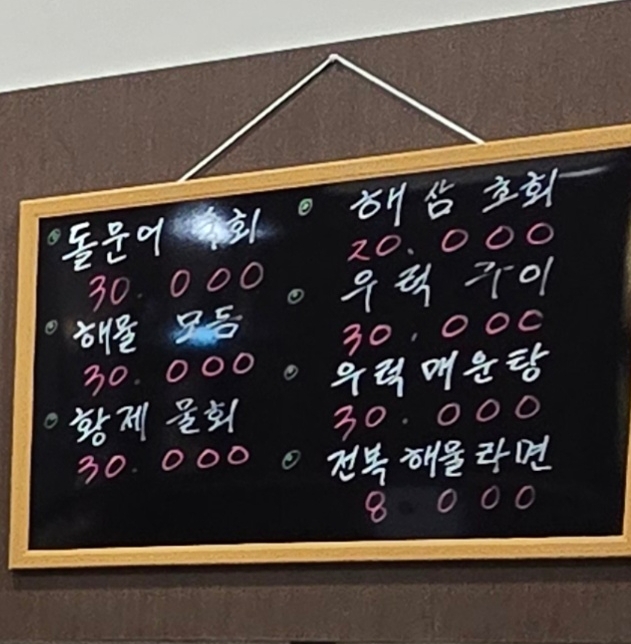 돌문어 회
30.000
해물 모듬
30.000
황제 물회
30.000
해삼 초회
20.000
우럭 구이
30.000
우럭매운탕
30.000
전복해물라면
8 000